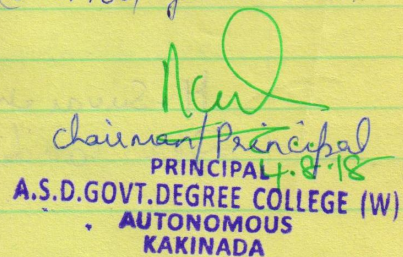 chairman/Principal
PRINCIPAL 4.8.18
A.S.D.GOVT.DEGREE COLLEGE (W)
AUTONOMOUS
KAKINADA